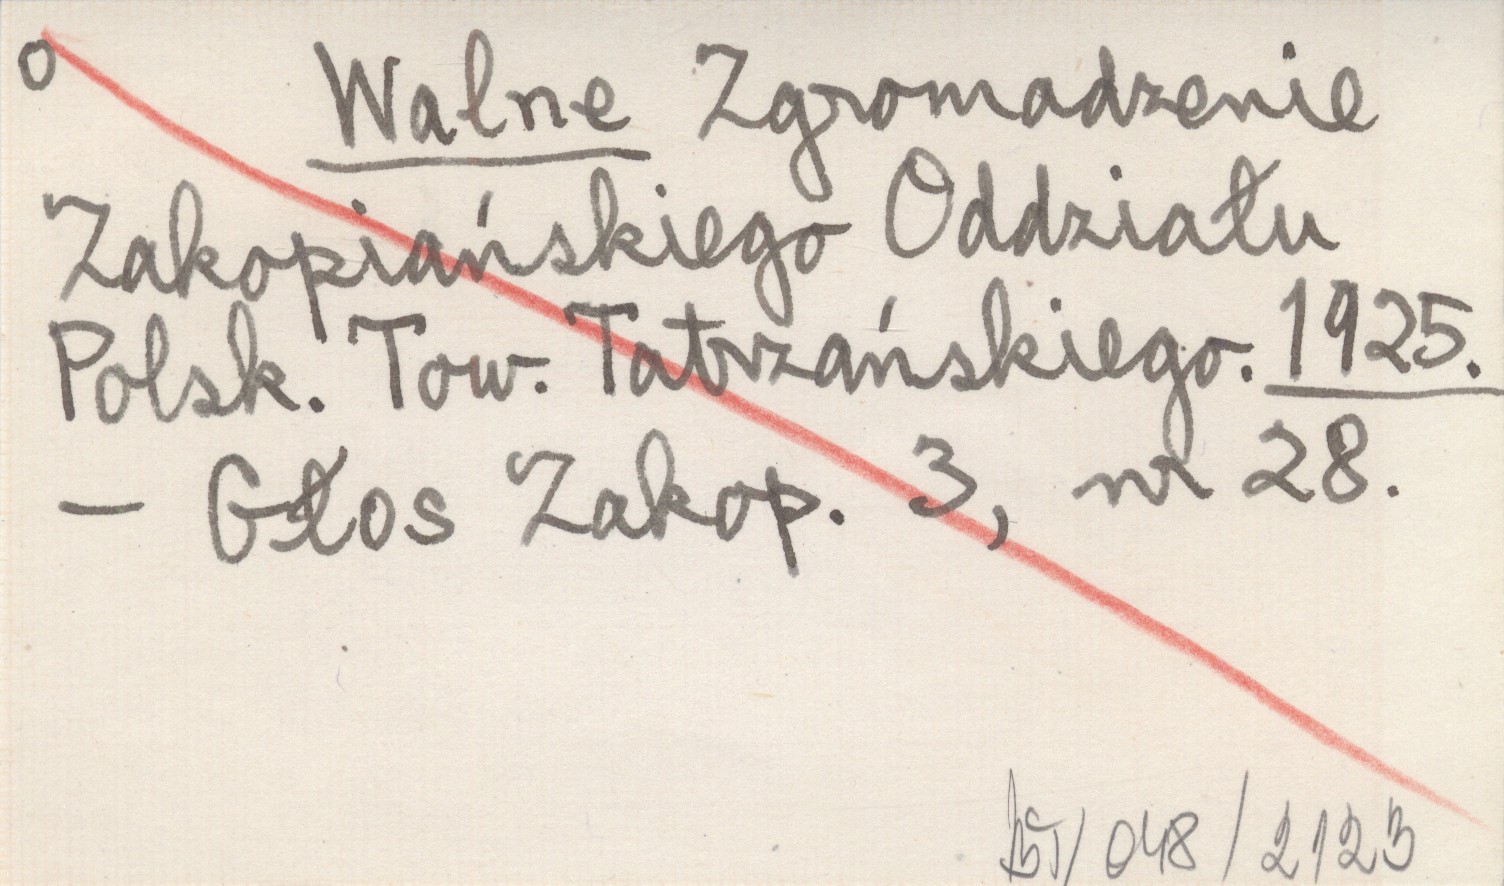 o Walne Zgromadzenie
Zakopiańskiego Oddziału
Polsk. Tow. Tatrzańskiego. 1925.
– Głos Zakop. 3, nr 28.
/048/2123